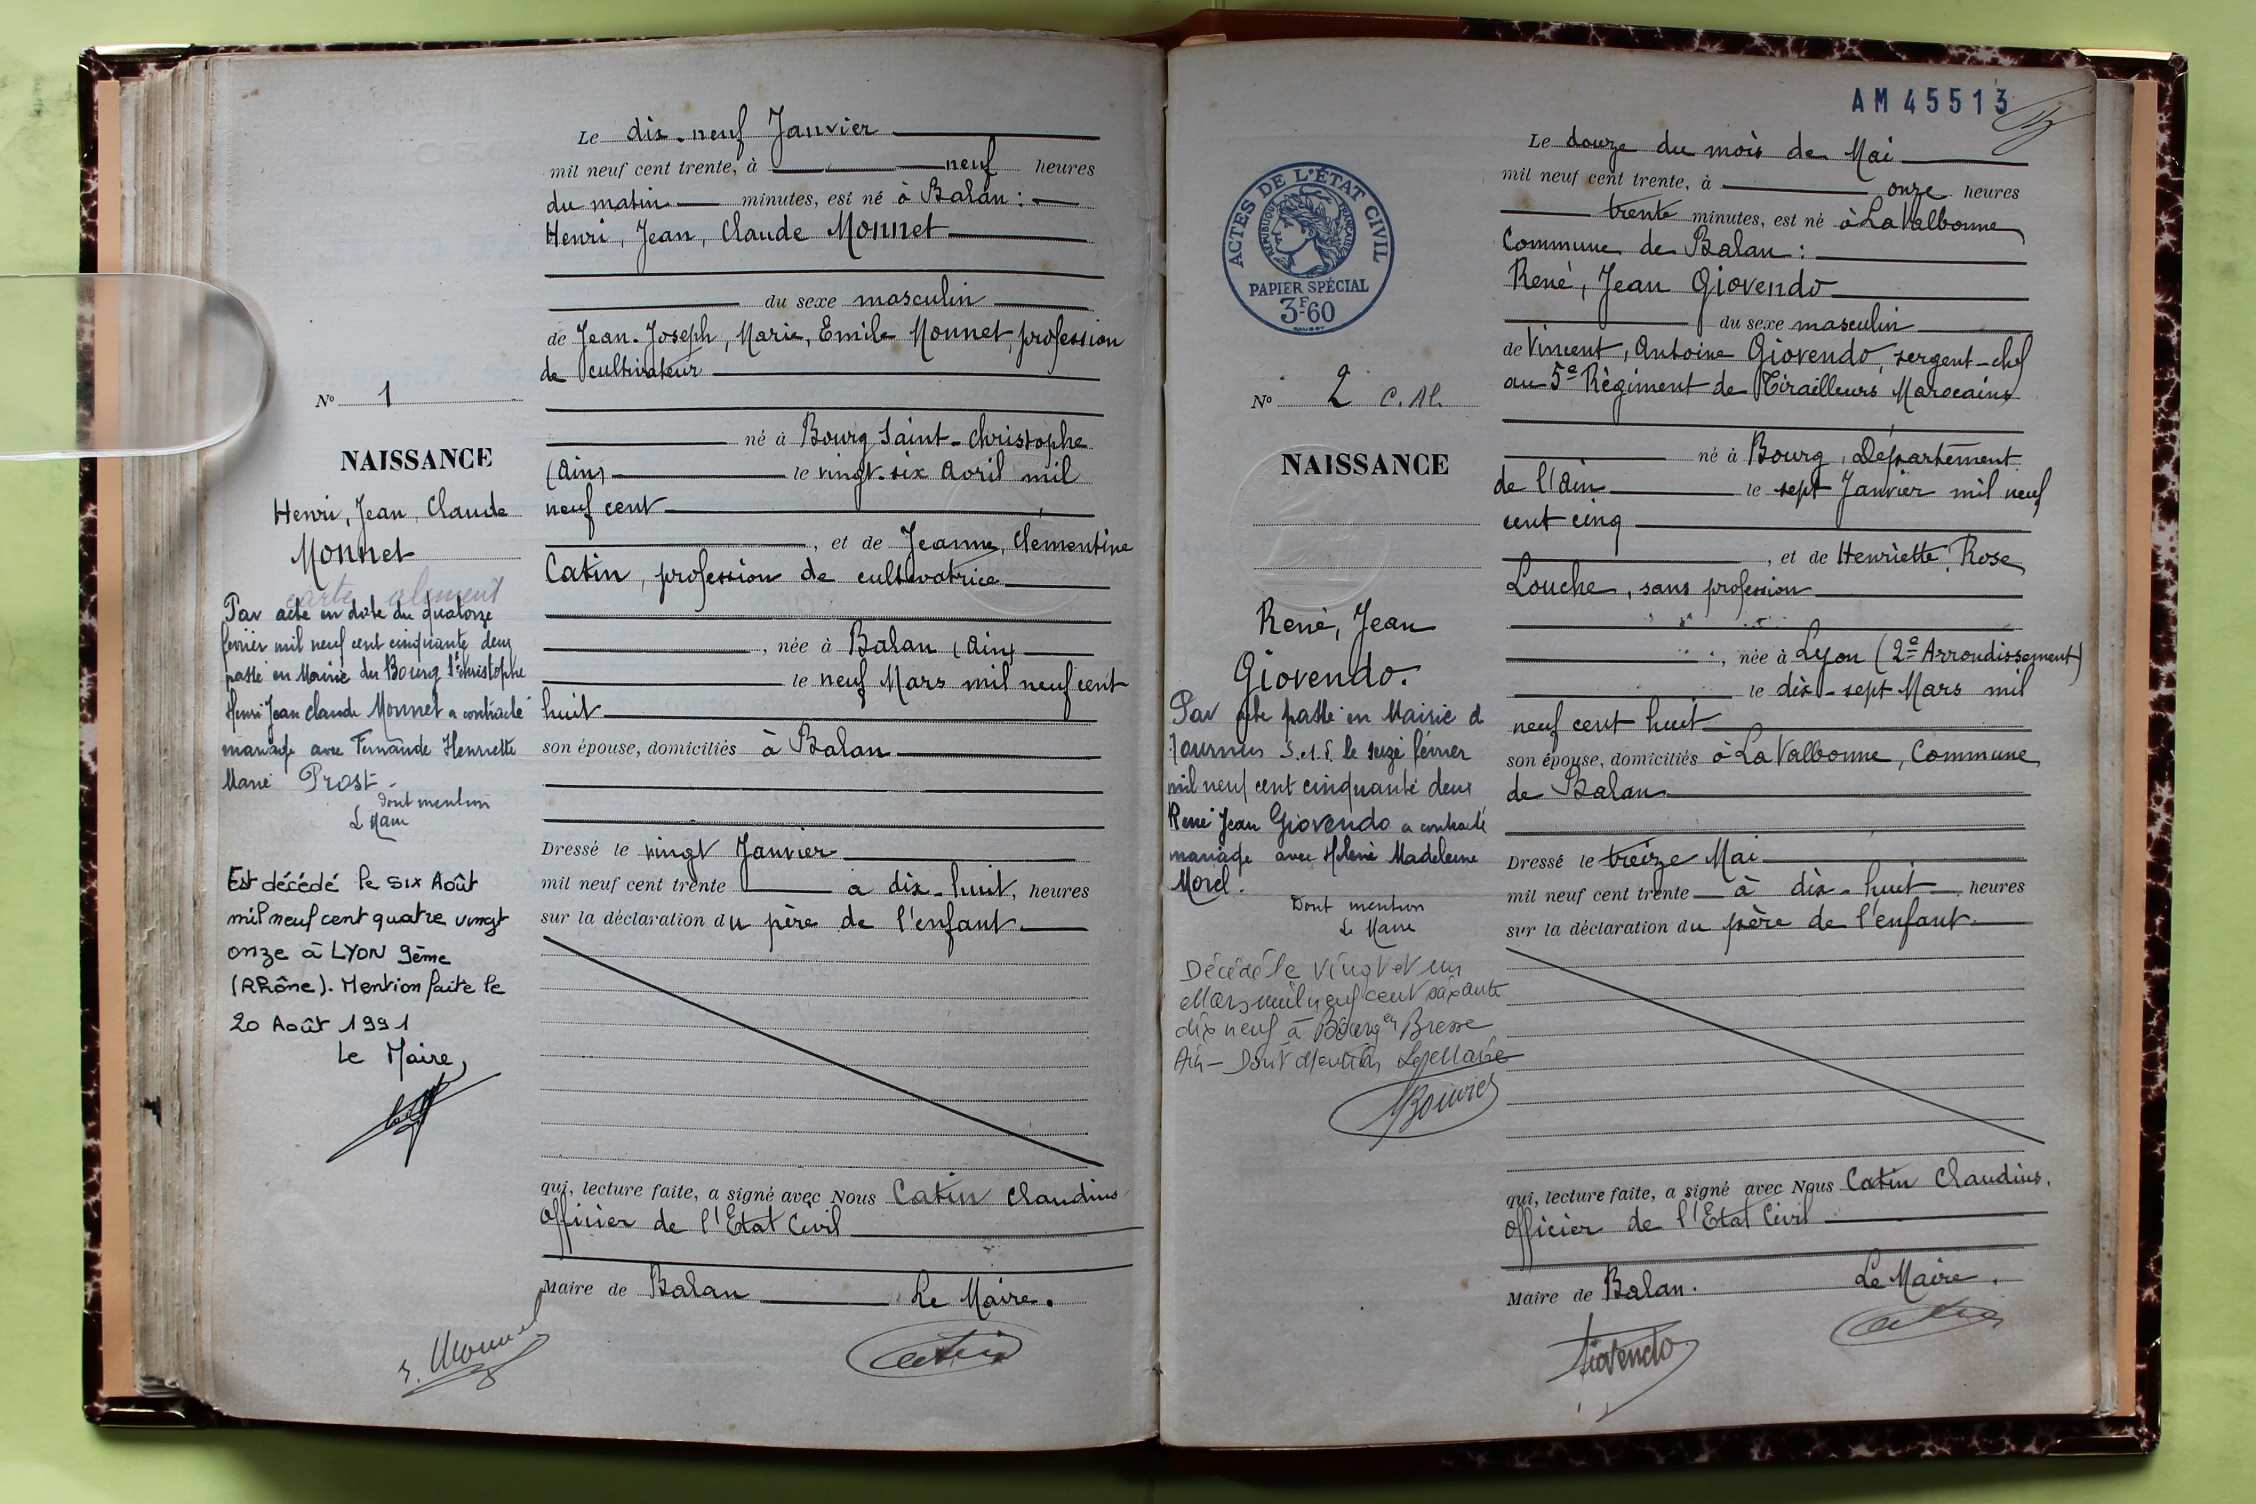 Le dix-neuf Janvier
mil neuf cent trente, à neuf heures
du matin minutes, est né à Balan :
Henri, Jean, Claude Monnet
du sexe masculin
de Jean-Joseph, Marie, Emile Monnet, profession
de cultivateur
né à Bourg Saint-Christophe
(Ain) le vingt-six Avril mil
neuf cent
, et de Jeanne, Clémentine
Catin, profession de cultivatrice
, née à Balan (Ain)
le neuf Mars mil neuf cent
huit
son épouse, domiciliés à Balan
Dressé le vingt Janvier
mil neuf cent trente à dix-huit, heures
sur la déclaration du père de l'enfant.
qui, lecture faite, a signé avec Nous Catin Claudius
Officier de l'Etat Civil
Maire de Balan Le Maire.
Nº 1
NAISSANCE
Henri, Jean, Claude
Monnet
carte
Par acte en date du quatorze
février mil neuf cent cinquante deux
passé en Mairie du Bourg St Christophe
Henri Jean Claude Monnet a contracté
mariage avec Fernande Henriette
Marie Prost
Dont mention
Le Maire
Est décédé le six Août
mil neuf cent quatre vingt
onze à LYON 9ème
(Rhône). Mention faite le
20 Août 1991
Le Maire,
J. Monnet
Catin
AM 45513
ACTES DE L'ÉTAT CIVIL
RÉPUBLIQUE FRANÇAISE
PAPIER SPÉCIAL
3F60
Nº 2 C. Al.
NAISSANCE
René, Jean
Giovendo.
Par acte passé en Mairie d
Tournus S.et.L le seize février
mil neuf cent cinquante deux
René Jean Giovendo a contracté
mariage avec Hélène Madeleine
Morel.
Dont mention
Le Maire
Décédé le vingt et un
Mars mil neuf cent soixante
dix neuf à Bourg en Bresse
Ain - Dont Mention Le Maire
Bouvier
Le douze du mois de Mai
mil neuf cent trente, à onze heures
trente minutes, est né à La Valbonne
Commune de Balan :
René, Jean Giovendo
du sexe masculin
de Vincent, Antoine Giovendo, sergent-chef
au 5e Régiment de Tirailleurs Marocains
né à Bourg, Département
de l'Ain le sept Janvier mil neuf
cent cinq
, et de Henriette, Rose
Louche, sans profession
, née à Lyon (2e Arrondissement)
le dix-sept Mars mil
neuf cent huit
son épouse, domiciliés à La Valbonne, Commune
de Balan
Dressé le treize Mai
mil neuf cent trente à dix-huit heures
sur la déclaration du père de l'enfant.
qui, lecture faite, a signé avec Nous Catin Claudius.
Officier de l'Etat Civil
Maire de Balan. Le Maire.
Giovendo
Catin